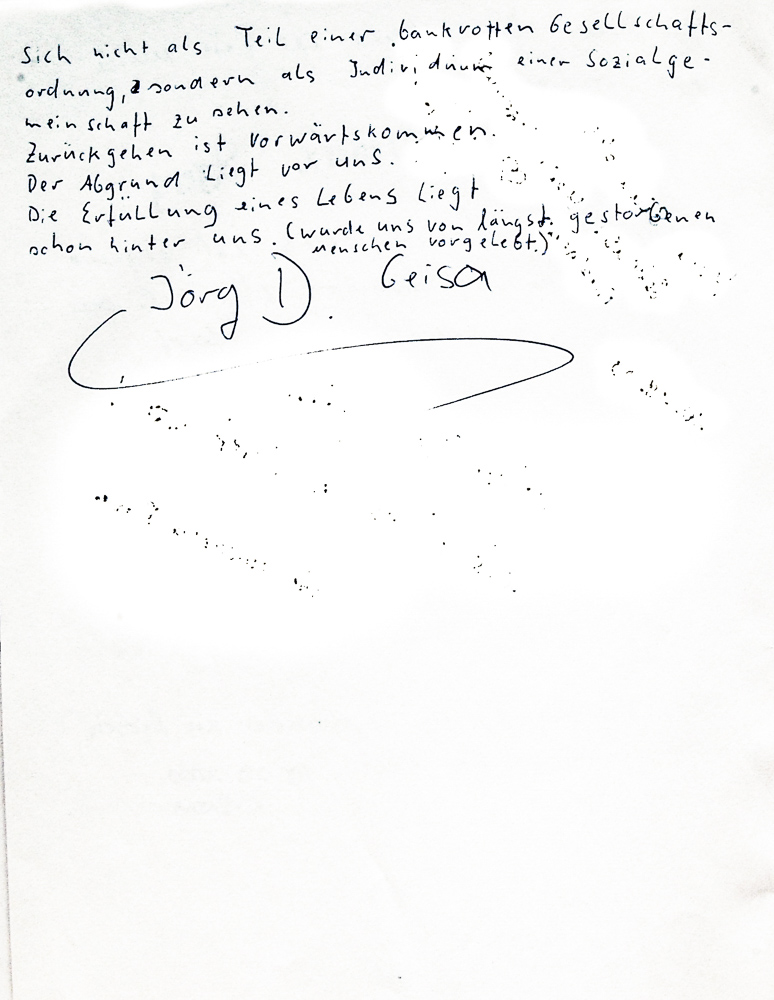 Sich nicht als Teil einer bankrotten Gesellschafts-
ordnung, sondern als Individuum einer Sozialge-
meinschaft zu sehen.
Zurückgehen ist Vorwärtskommen.
Der Abgrund Liegt vor uns.
Die Erfüllung eines Lebens Liegt
schon hinter uns. (wurde uns von längst gestorbenen
menschen vorgelebt.)
Jörg D. Geisa